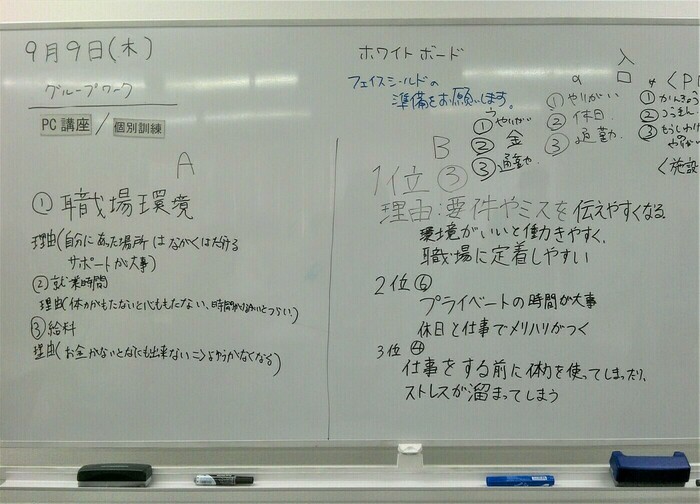 9月9日(木)
グループワーク
PC講座 / 個別訓練
A
① 職場環境
理由(自分にあった場所はながくはたらける
サポートが大事)
②就業時間
理由(体力がもたないと心ももたない、時間が
③給料
理由(お金がないとなにも出来ない
ホワイトボード
フェイスシールドの
準備をお願いします。
① やりがい
② 金
③ 通勤
① やりがい
② 休日
③ 通勤
入
口
①
②
③
〈施設
B
1位 ③
理由:要件やミスを伝えやすくなる
環境がいいと働きやすく、
職場に定着しやすい
2位 ⑥
プライベートの時間が大事
休日と仕事でメリハリがつく
3位 ④
仕事をする前に体力を使ってしまったり、
ストレスが溜まってしまう